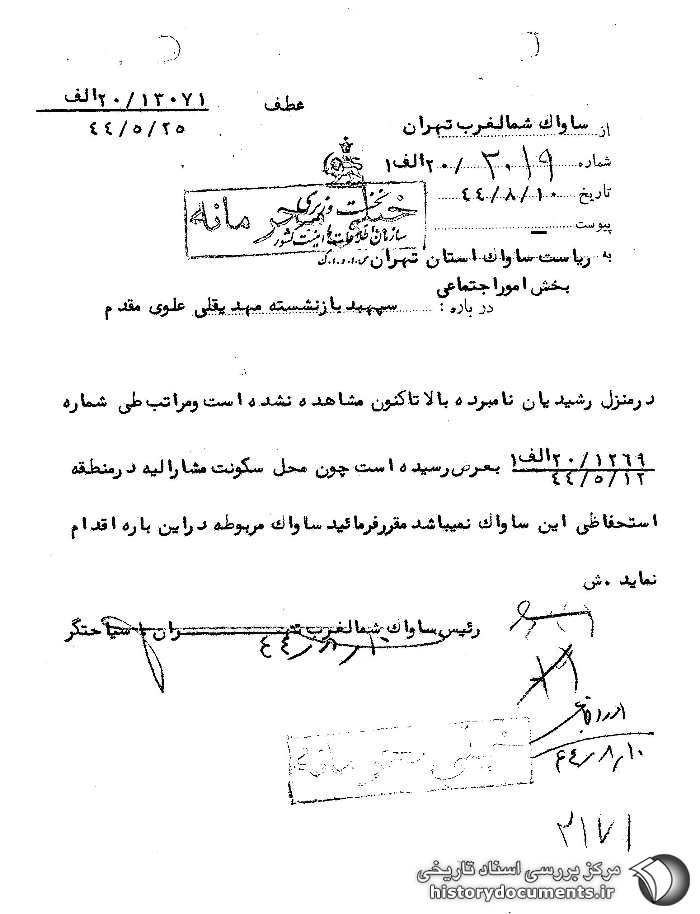 عطف ۲۰/۱۳۰۷۱الف
۴۴/۵/۲۵
از ساواك شمالغرب تهران
شماره ۲۰/۳۰۱۹الف۱
تاریخ ۴۴/۸/۱۰
پیوست —
نخست وزیری
سازمان اطلاعات و امنیت کشور
خیلی محرمانه
به ریاست ساواك استان تهران
بخش امور اجتماعی
درباره : سپهبد بازنشسته مهدیقلی علوی مقدم
درمنزل رشیدیان نامبرده بالا تاکنون مشاهده نشده است ومراتب طی شماره
۲۰/۱۲۶۹الف۱
۴۴/۵/۱۲
بعرض رسیده است چون محل سکونت مشارالیه درمنطقه
استحفاظی این ساواك نمیباشد مقررفرمائید ساواك مربوطه دراین باره اقدام
نماید ۰ش
رئیس ساواك شمالغرب تهران سیاحتگر
۴۴/۸/۱۰
۴۴/۸/۱۰
خیلی محرمانه
۳۱۷۱
مرکز بررسی اسناد تاریخی
historydocuments.ir